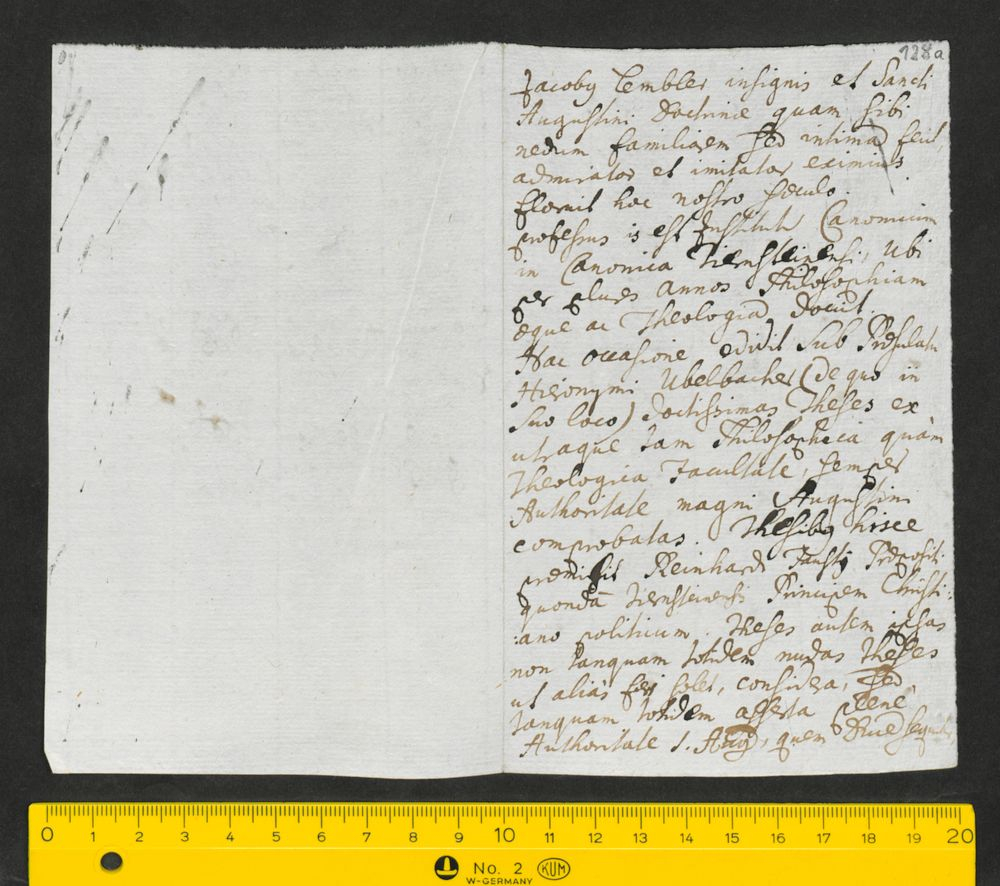 128a
Jacoby Cembler insignis et Sancti
Augustini Doctrinæ quam sibi
nedum familiarem sed intimã fecit,
admirator et imitator eximius
floruit hoc nostro sæculo.
professus is est Institutũ Canonicum
in Canonica Tiernsteinensi, Ubi
per plures annos Philosophiam
æque ac Theologiã docuit.
Hac occasione edidit sub Præsulatu
Hieronymi Ubelbacher (de quo in
suo loco) doctissimas Theses ex
utraque tam Philosophica quàm
Theologica Facultate, semper
Authoritate magni Augustini
comprobatas. Thesibq hisce
præmisit Reinhardi Fausty Præpositi
quondã Tiernsteinensis Principem Christi:
:ano politicum. Theses autem ipsas
non tanquam totidem nudas Theses
ut aliàs fieri solet, considera, sed
tanquam totidem asserta plene
Authoritate S. Aug, quem
0 1 2 3 4 5 6 7 8 9 10 11 12 13 14 15 16 17 18 19 20
No. 2 KUM
W-GERMANY